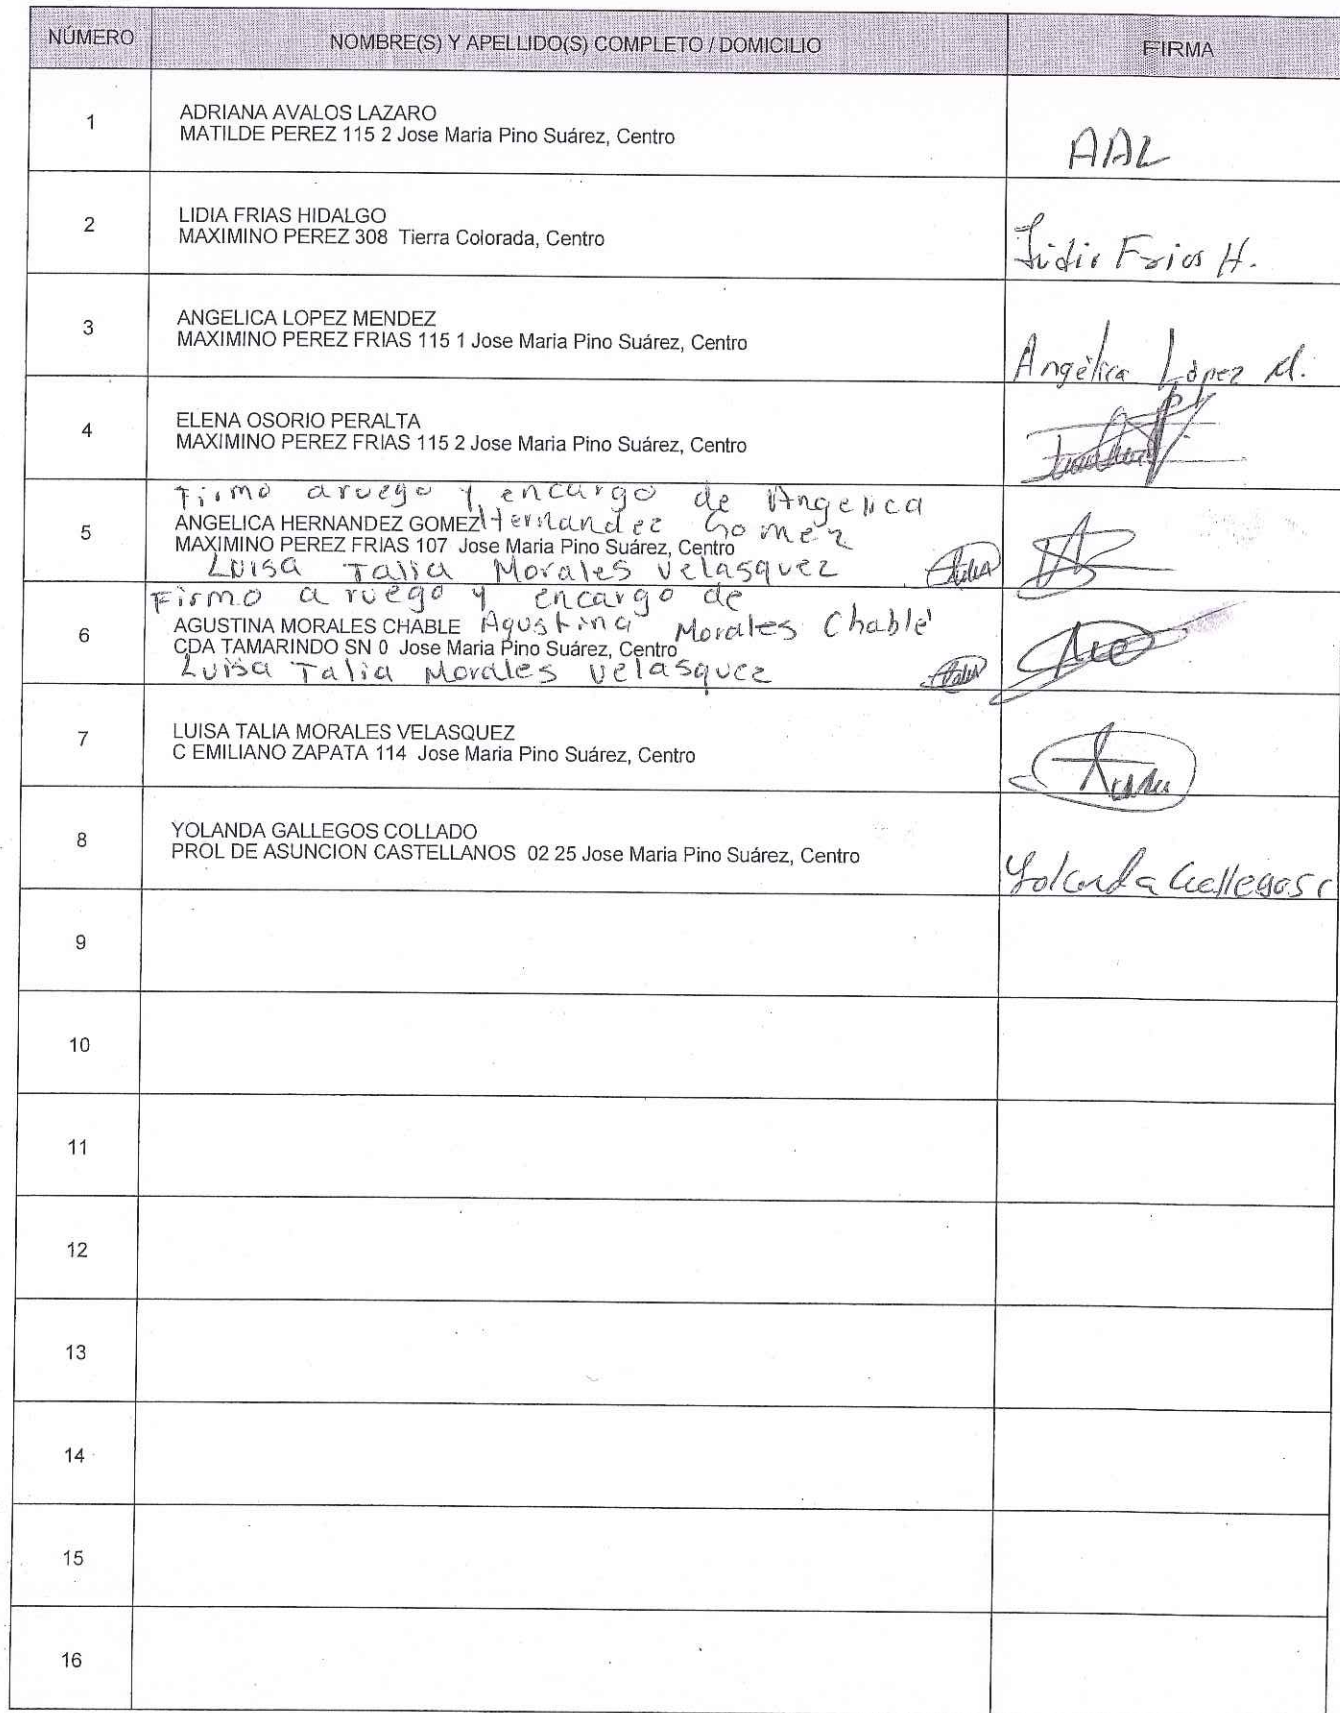 NÚMERO NOMBRE(S) Y APELLIDO(S) COMPLETO / DOMICILIO FIRMA
1 ADRIANA AVALOS LAZARO
MATILDE PEREZ 115 2 Jose Maria Pino Suárez, Centro
AAL
2 LIDIA FRIAS HIDALGO
MAXIMINO PEREZ 308 Tierra Colorada, Centro
Lidia Frias H.
3 ANGELICA LOPEZ MENDEZ
MAXIMINO PEREZ FRIAS 115 1 Jose Maria Pino Suárez, Centro
Angélica López M.
4 ELENA OSORIO PERALTA
MAXIMINO PEREZ FRIAS 115 2 Jose Maria Pino Suárez, Centro
Firmo aruego y encargo de Angelica
5 ANGELICA HERNANDEZ GOMEZ Hernandez Gomez
MAXIMINO PEREZ FRIAS 107 Jose Maria Pino Suárez, Centro
Luisa Talia Morales Velasquez
Firmo a ruego y encargo de
6 AGUSTINA MORALES CHABLE Agustina Morales Chablé
CDA TAMARINDO SN 0 Jose Maria Pino Suárez, Centro
Luisa Talia Morales Velasquez
7 LUISA TALIA MORALES VELASQUEZ
C EMILIANO ZAPATA 114 Jose Maria Pino Suárez, Centro
8 YOLANDA GALLEGOS COLLADO
PROL DE ASUNCION CASTELLANOS 02 25 Jose Maria Pino Suárez, Centro
Yolanda Gallegos C
9
10
11
12
13
14
15
16